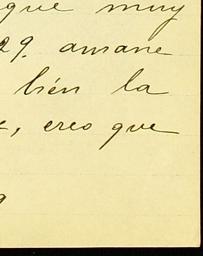 que muy
29. amane
bién la
, creo que